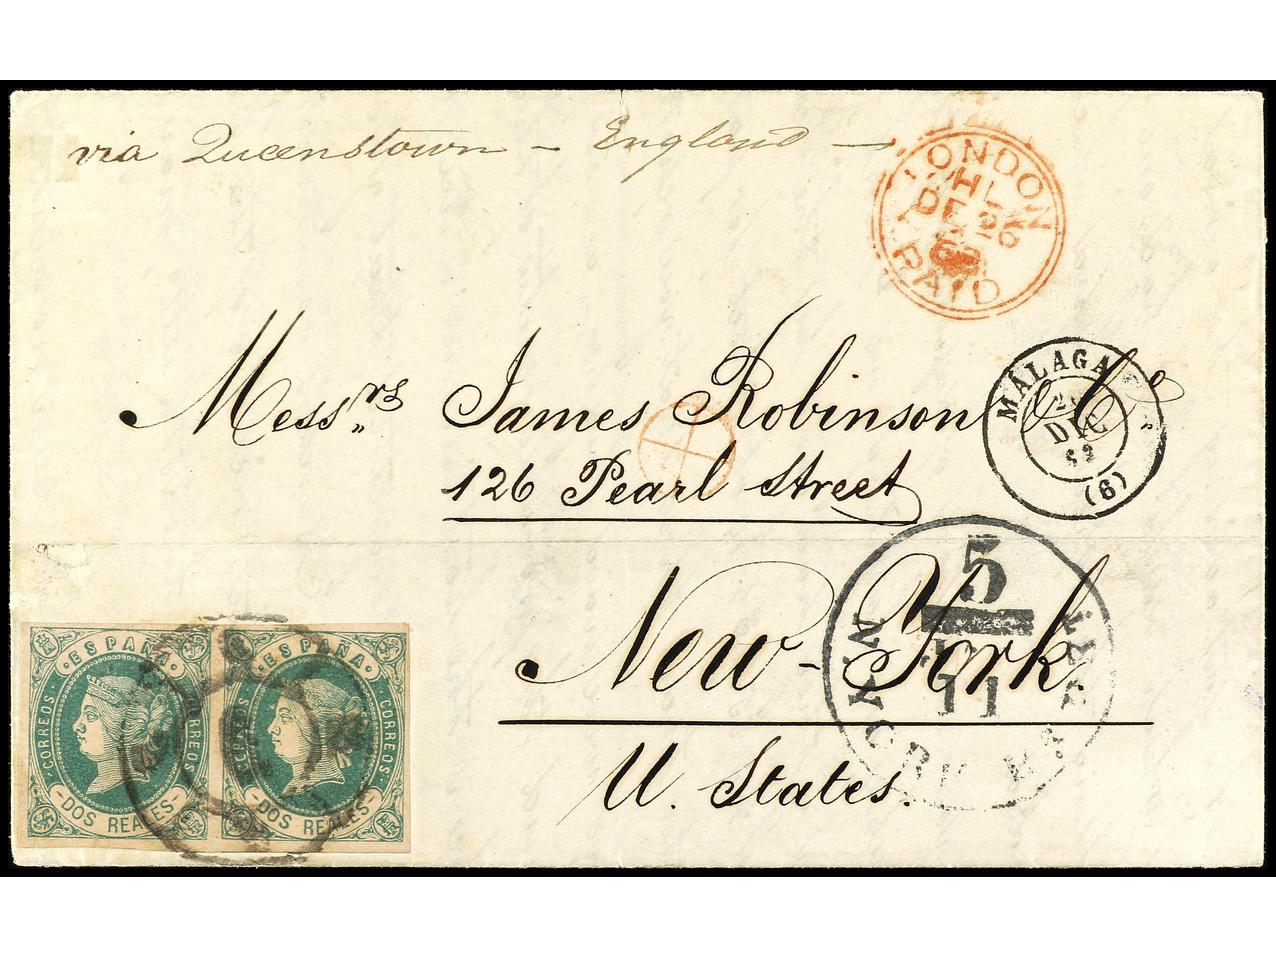 via Queenstown - England -
LONDON
HL
DE 26
62
PAID
MÁLAGA
DIC
62
(6)
Mess,,rs James Robinson & Co
126 Pearl Street
New-York
U. States.
5
11
N.
YORK
ESPAÑA
CORREOS
CORREOS
DOS REALES
ESPAÑA
CORREOS
CORREOS
DOS REALES